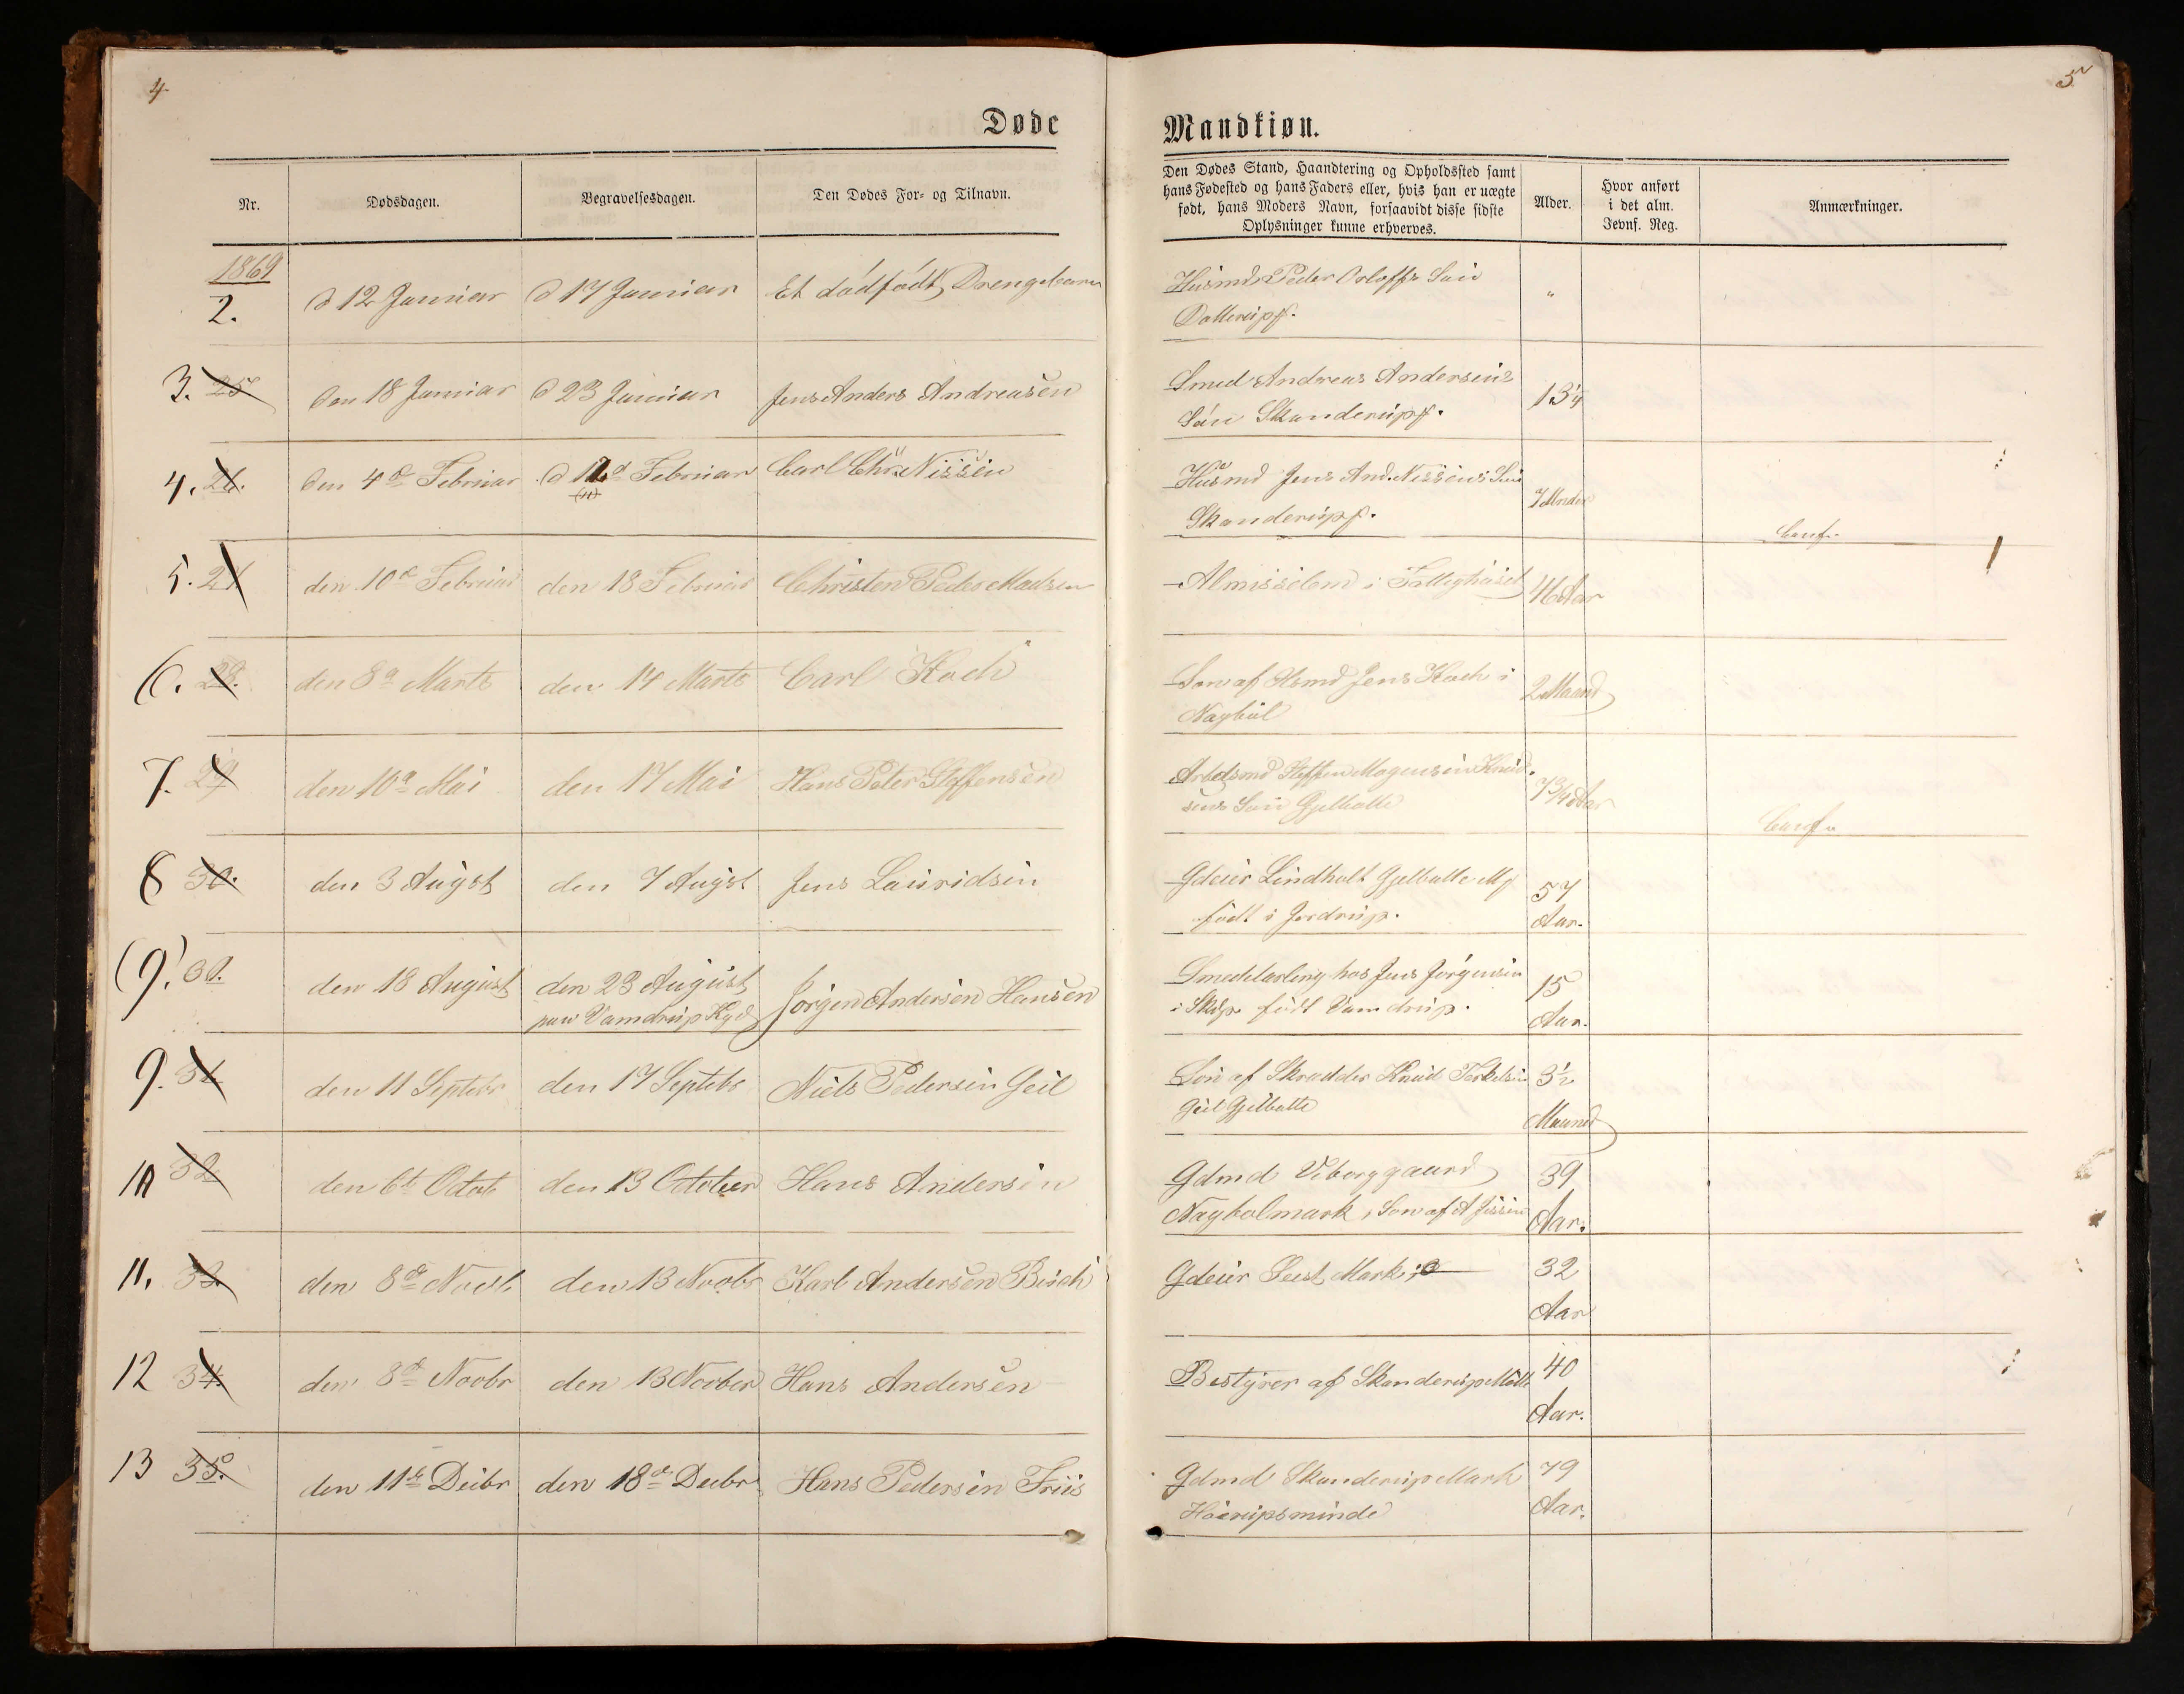 4
5
Døde
Mandkiøn.
Nr.
Dødsdagen.
Begravelsesdagen.
Den Dødes For- og Tilnavn.
Den Dødes Stand, Haandtering og Opholdssted samt
hans Fødested og hans Faders eller, hvis han er uægte
født, hans Moders Navn, forsaavidt disse sidste
Oplysninger kunne erhverves.
Alder.
Hvor anført
i det alm.
Jevnf. Reg.
Anmærkninger.
1869
2. d 12 Januar d 17 Januar Et dødfødt Drengebarn Husmd Peder Orloffs Søn "
Dollerup
3. 25 Den 18 Januar d 23 Januar Jens Anders Andreasen Smed Andreas Andersens 13/4
Søn Skanderup
4. 26. Den 4de Februar d 12 Februar Carl Chr. Nissen Husmd Jens And. Nissens Søn 7 Mndr
(11) Skanderup
5. 27 den 10de Februar den 18 Februar Christen Peder Madsen Almisselem i Fattighuset 46 Aar
6. 28. den 8de Marts den 14 Marts Carl Koch Søn af Hsmd Jens Koch i 2 Maaned
Nagbøl
7. 29 den 10de Mai den 17 Mai Hans Peter Steffensen Arbdsmd Steffen Mogensen Knud- 7 3/4 Aar
sens Søn Gjelballe
8 30. den 3 August den 7 August Jens Lauridsen Gdeier Lindholt Gjelballe M 57
født i Jordrup. Aar.
(9.) 31. den 18 August den 23 August Jørgen Andersen Hansen Smedelærling hos Jens Jørgensen 15
paa Vamdrup Kgd i Skdp. født Vamdrup. Aar.
9. 31 den 11 Septebr den 17 Septebr Niels Pedersen Geil Søn af Skrædder Knud Terkelsen 3 1/2
Geil Gjelballe Maaned
10 32 den 6te Octob den 13 October Hans Andersen Gdmd Viborggaard 39
Nagbølmark, Søn af A Jessen Aar.
11. 33. den 8de Novb den 13 Novbr Karl Andersen Bech Gdeier Seest Mark 32
Aar
12 34. den 8de Novbr den 13 Novber Hans Andersen Bestyrer af Skanderup Mølle 40
Aar.
13 35. den 11te Decbr den 18de Decbr Hans Pedersen Friis Gdmd Skanderup Mark 79
Høirupsminde Aar.